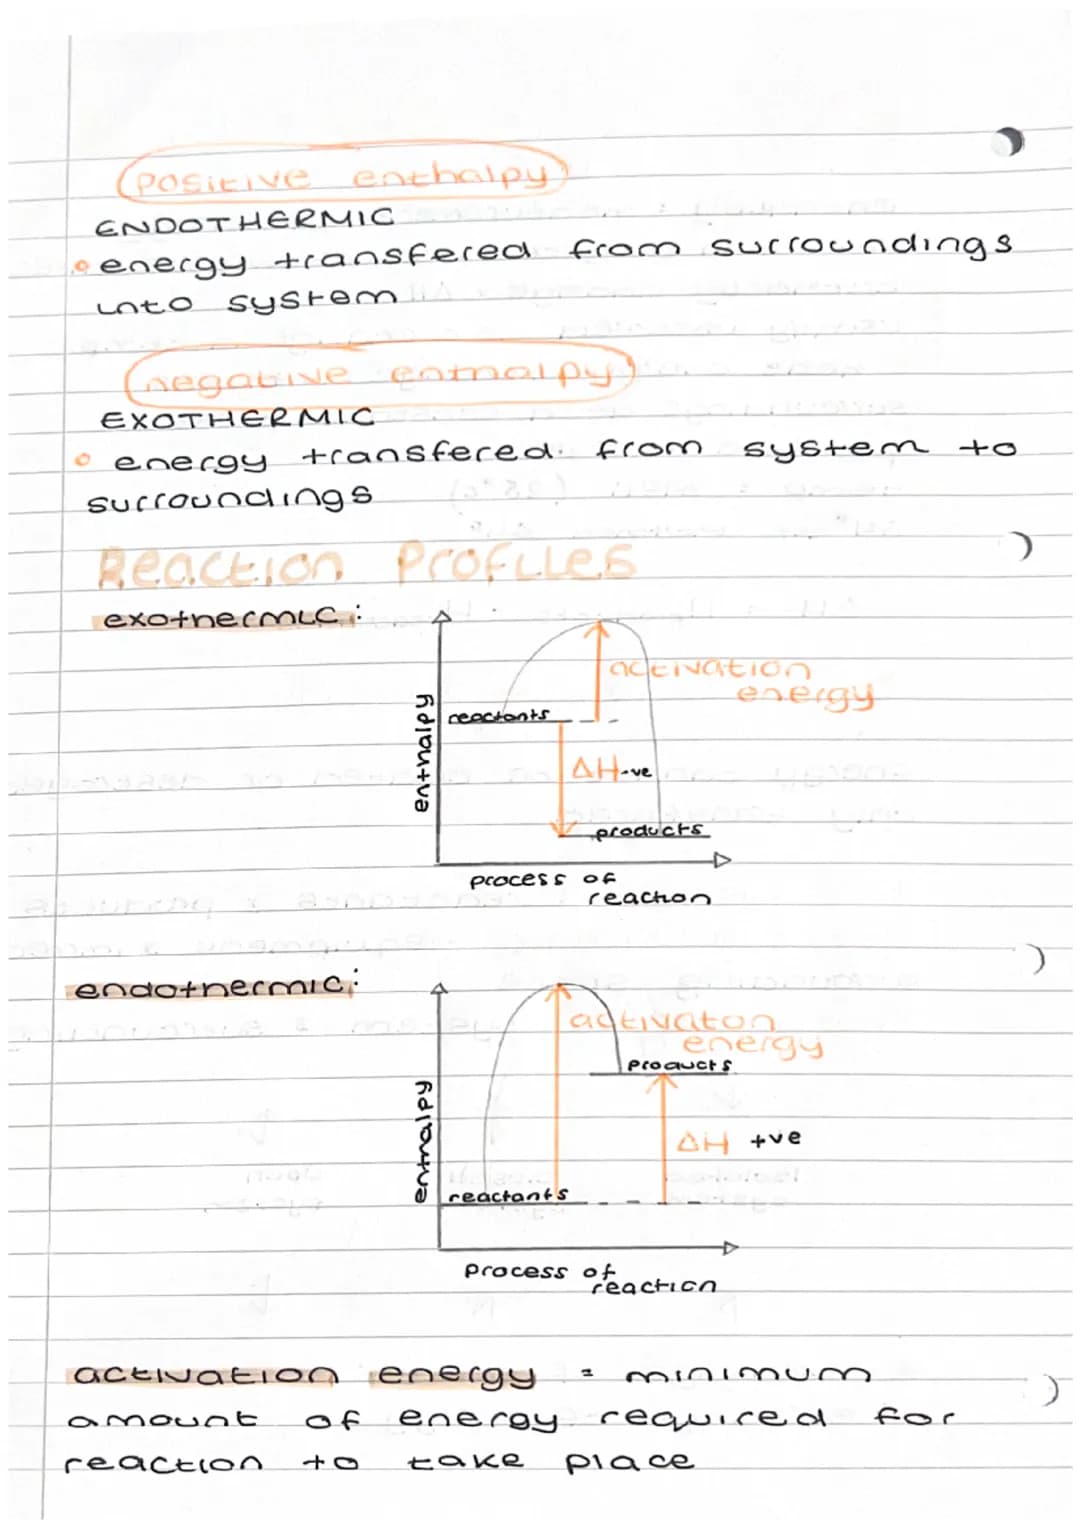 positive enthalpy
ENDOTHERMIC
• energy transfered from surroundings
into system
negative enthalpy
EXOTHERMIC
• energy transfered from system to
surroundings
Reaction Profiles
exothermic:
activation
energy
enthalpy
reactants
ΔH -ve
products
process of
reaction
endothermic:
activaton
energy
products
enthalpy
ΔH +ve
reactants
process of
reaction
activation energy = minimum
amount of energy required for
reaction to take place